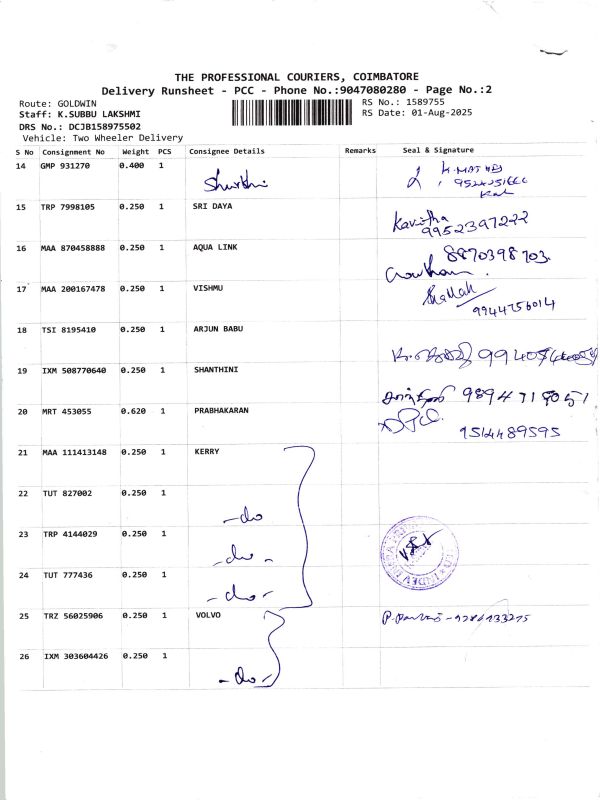 THE PROFESSIONAL COURIERS, COIMBATORE
Delivery Runsheet - PCC - Phone No.:9047080280 - Page No.:2
Route: GOLDWIN
RS No.: 1589755
Staff: K.SUBBU LAKSHMI
RS Date: 01-Aug-2025
DRS No.: DCJB158975502
Vehicle: Two Wheeler Delivery
S No Consignment No Weight PCS Consignee Details Remarks Seal & Signature
14 GMP 931270 0.400 1
15 TRP 7998105 0.250 1 SRI DAYA Kavitha
9952397222
16 MAA 870458888 0.250 1 AQUA LINK 8870398703
Gowtham
17 MAA 200167478 0.250 1 VISHMU
9944756014
18 TSI 8195410 0.250 1 ARJUN BABU
19 IXM 508770640 0.250 1 SHANTHINI
20 MRT 453055 0.620 1 PRABHAKARAN
9514489595
21 MAA 111413148 0.250 1 KERRY
22 TUT 827002 0.250 1
-do
23 TRP 4144029 0.250 1
-do-
24 TUT 777436 0.250 1
-do-
25 TRZ 56025906 0.250 1 VOLVO
26 IXM 303604426 0.250 1
-do-